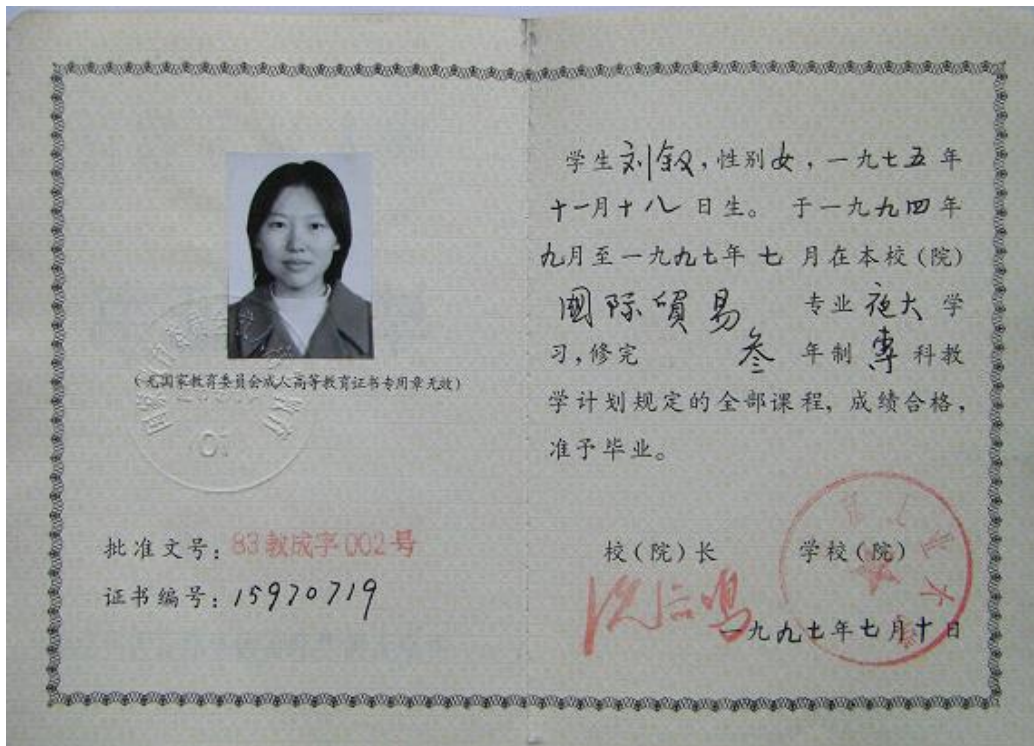 (无国家教育委员会成人高等教育证书专用章无效)
批准文号：83教成字002号
证书编号：15970719
学生刘钗，性别女，一九七五年
十一月十八日生。于一九九四年
九月至一九九七年七月在本校(院)
國际貿易 专业夜大学
习，修完 叁 年制 專 科教
学计划规定的全部课程，成绩合格，
准予毕业。
校(院)长 学校(院)
一九九七年七月十日